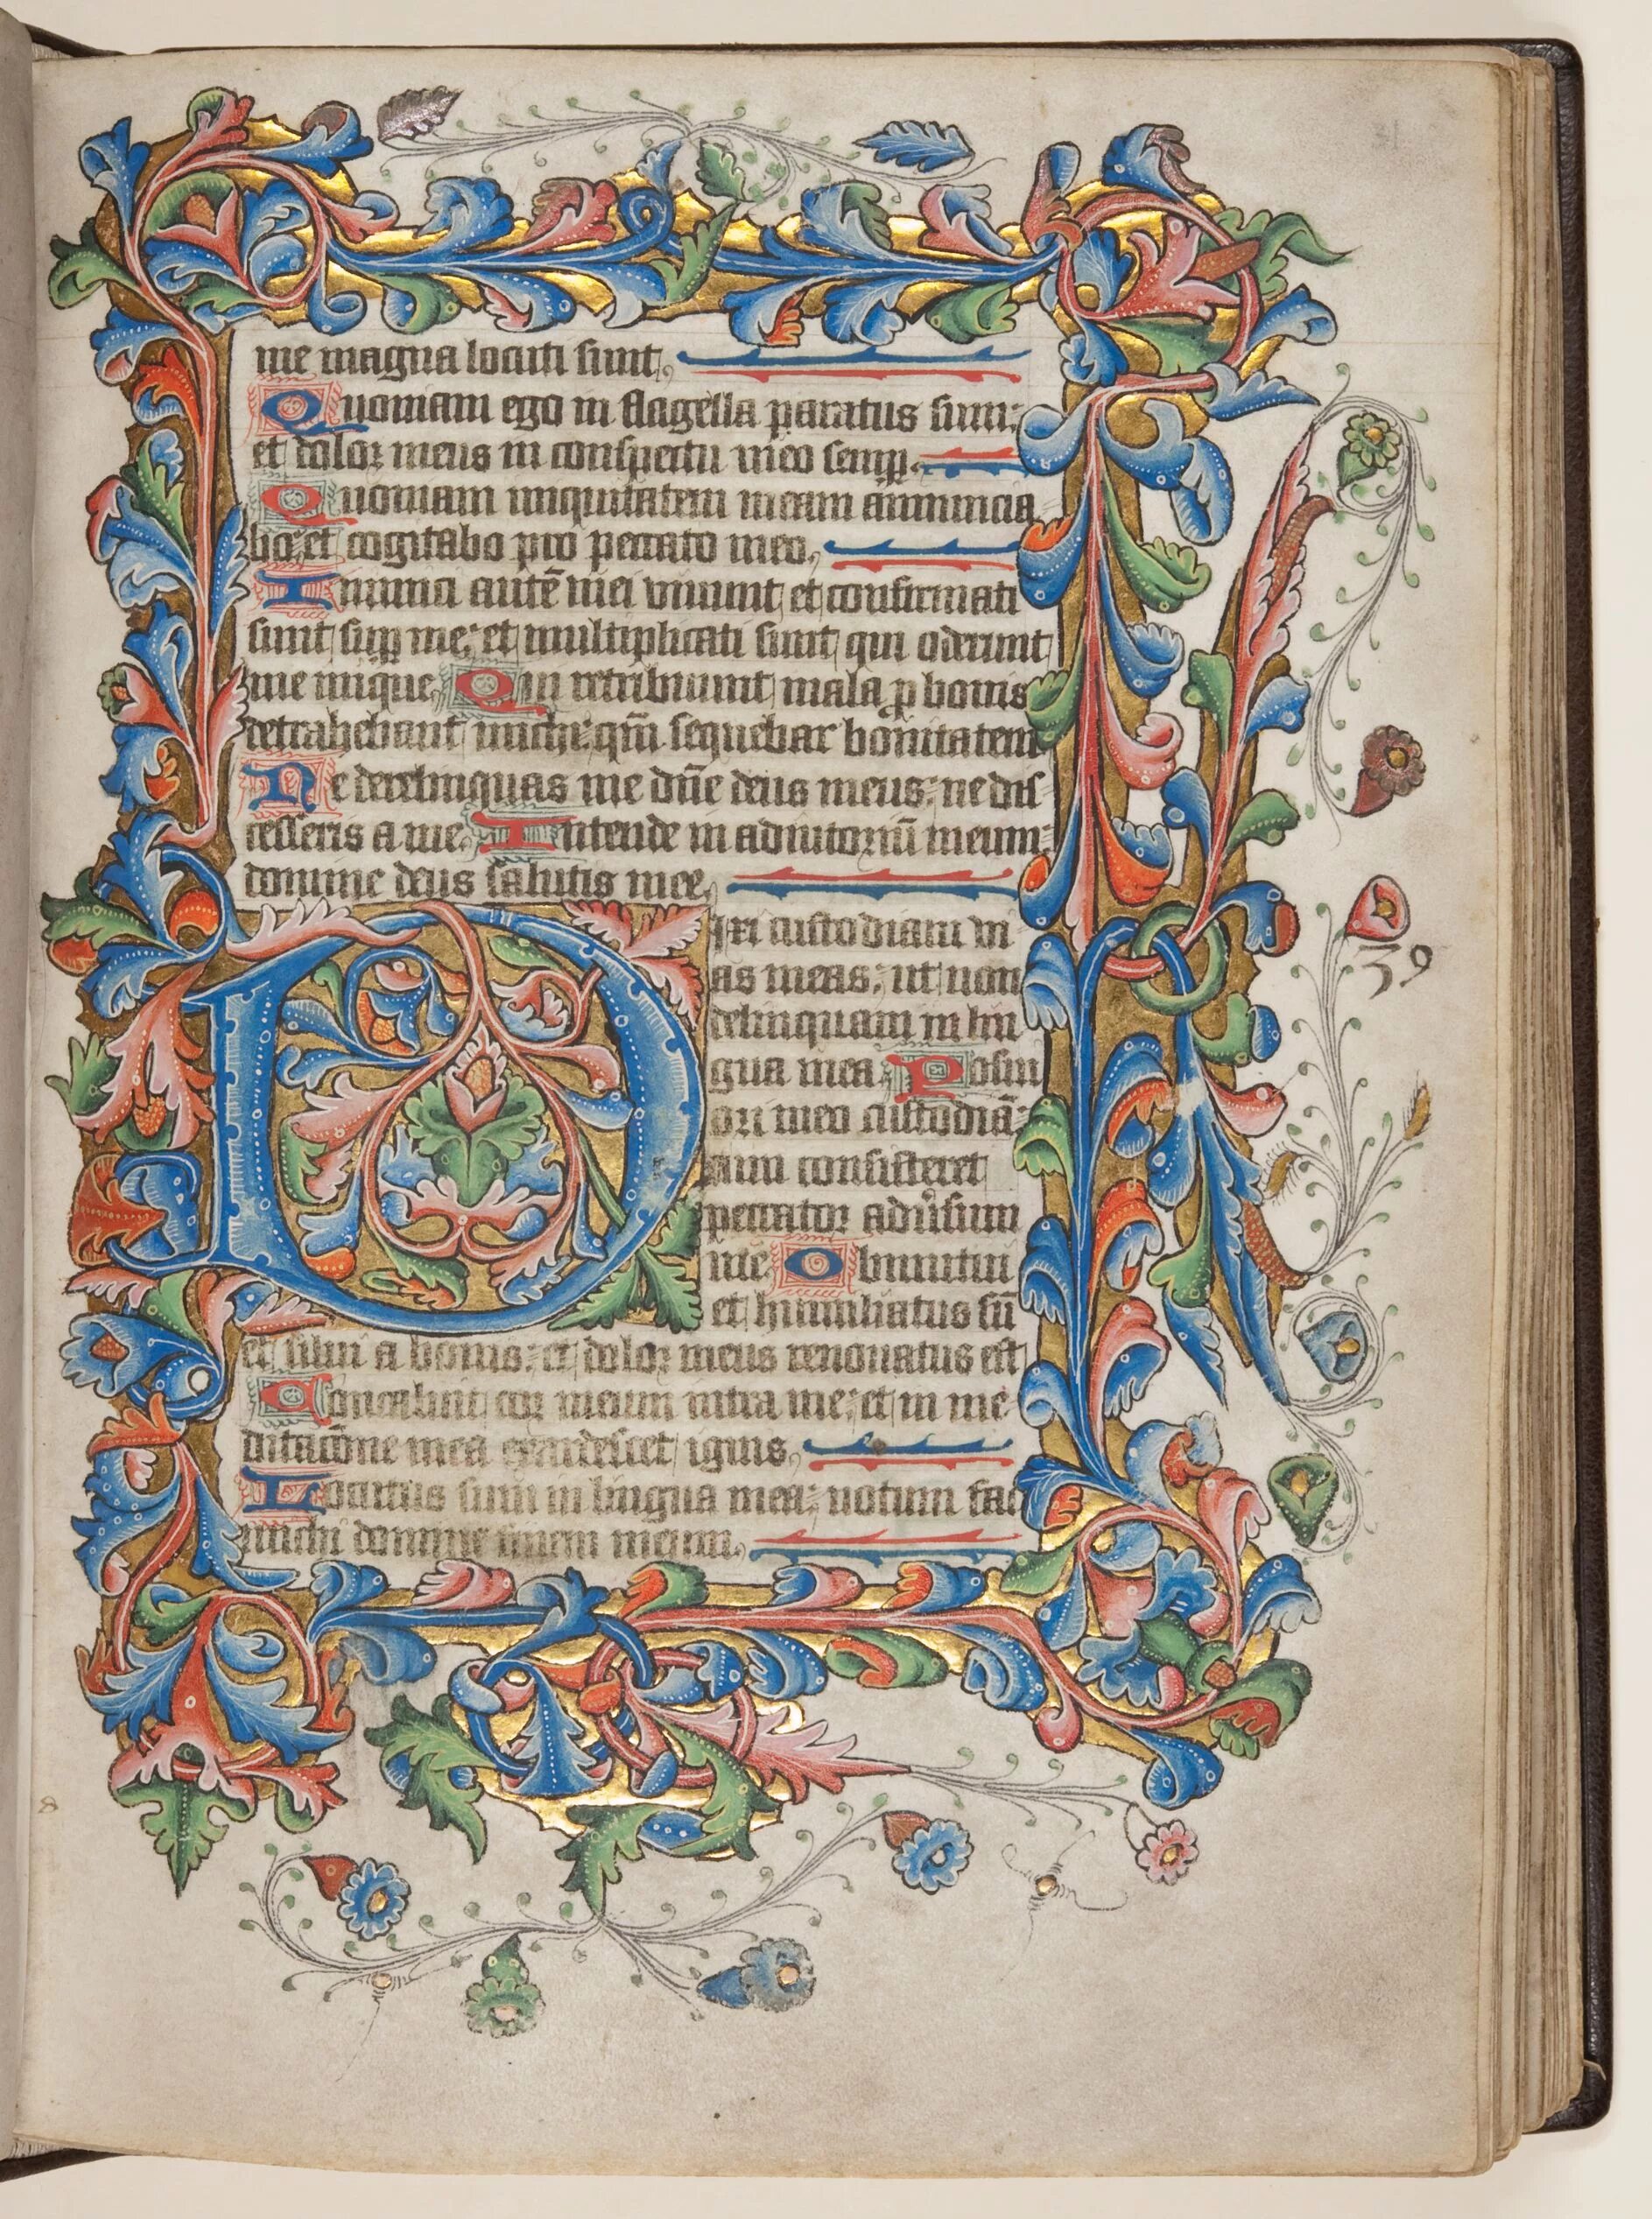 me magna locuti sunt.
Quoniam ego in flagella paratus sum:
et dolor meus in conspectu meo semp.
Quoniam iniquitatem meam annuncia
bo: et cogitabo pro peccato meo.
Inimici autē mei viuunt et confirmati
sunt sup me: et multiplicati sunt qui oderunt
me inique. Qui retribuunt mala p bonis
detrahebant michi: qm̄ sequebar bonitatem
Ne derelinquas me dn̄e deus meus: ne dis
cesseris a me. Intende in adiutoriū meum:
domine deus salutis mee.
Dixi custodiam vi
as meas: ut non
delinquam in lin
gua mea. Posui
ori meo custodiā:
cum consisteret
peccator aduersum
me. Obmutui
et humiliatus sū
et silui a bonis: et dolor meus renouatus est
Concaluit cor meum intra me: et in me
ditacōne mea exardescet ignis.
Locutus sum in lingua mea: notum fac
michi domine finem meum.
39